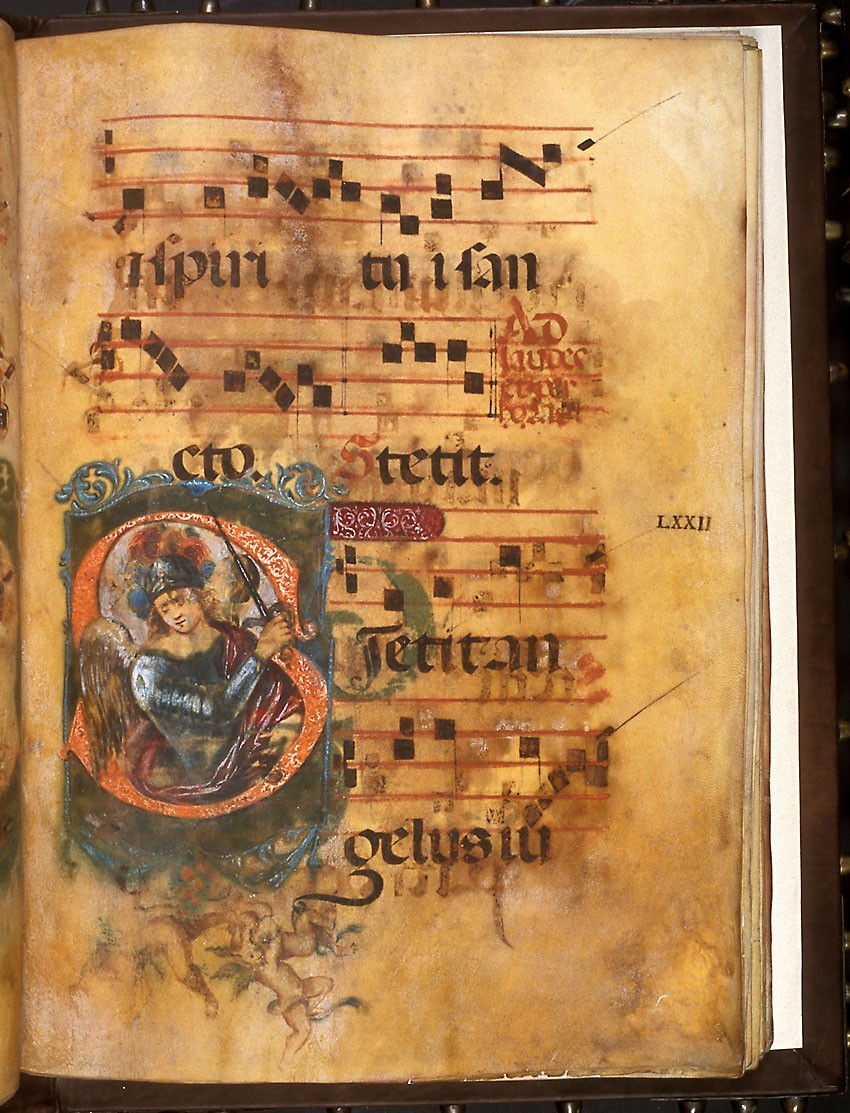 i spiri tu i san
Ad
laudes
et per
horas
cto. Stetit.
LXXII
Stetit an
gelus iu